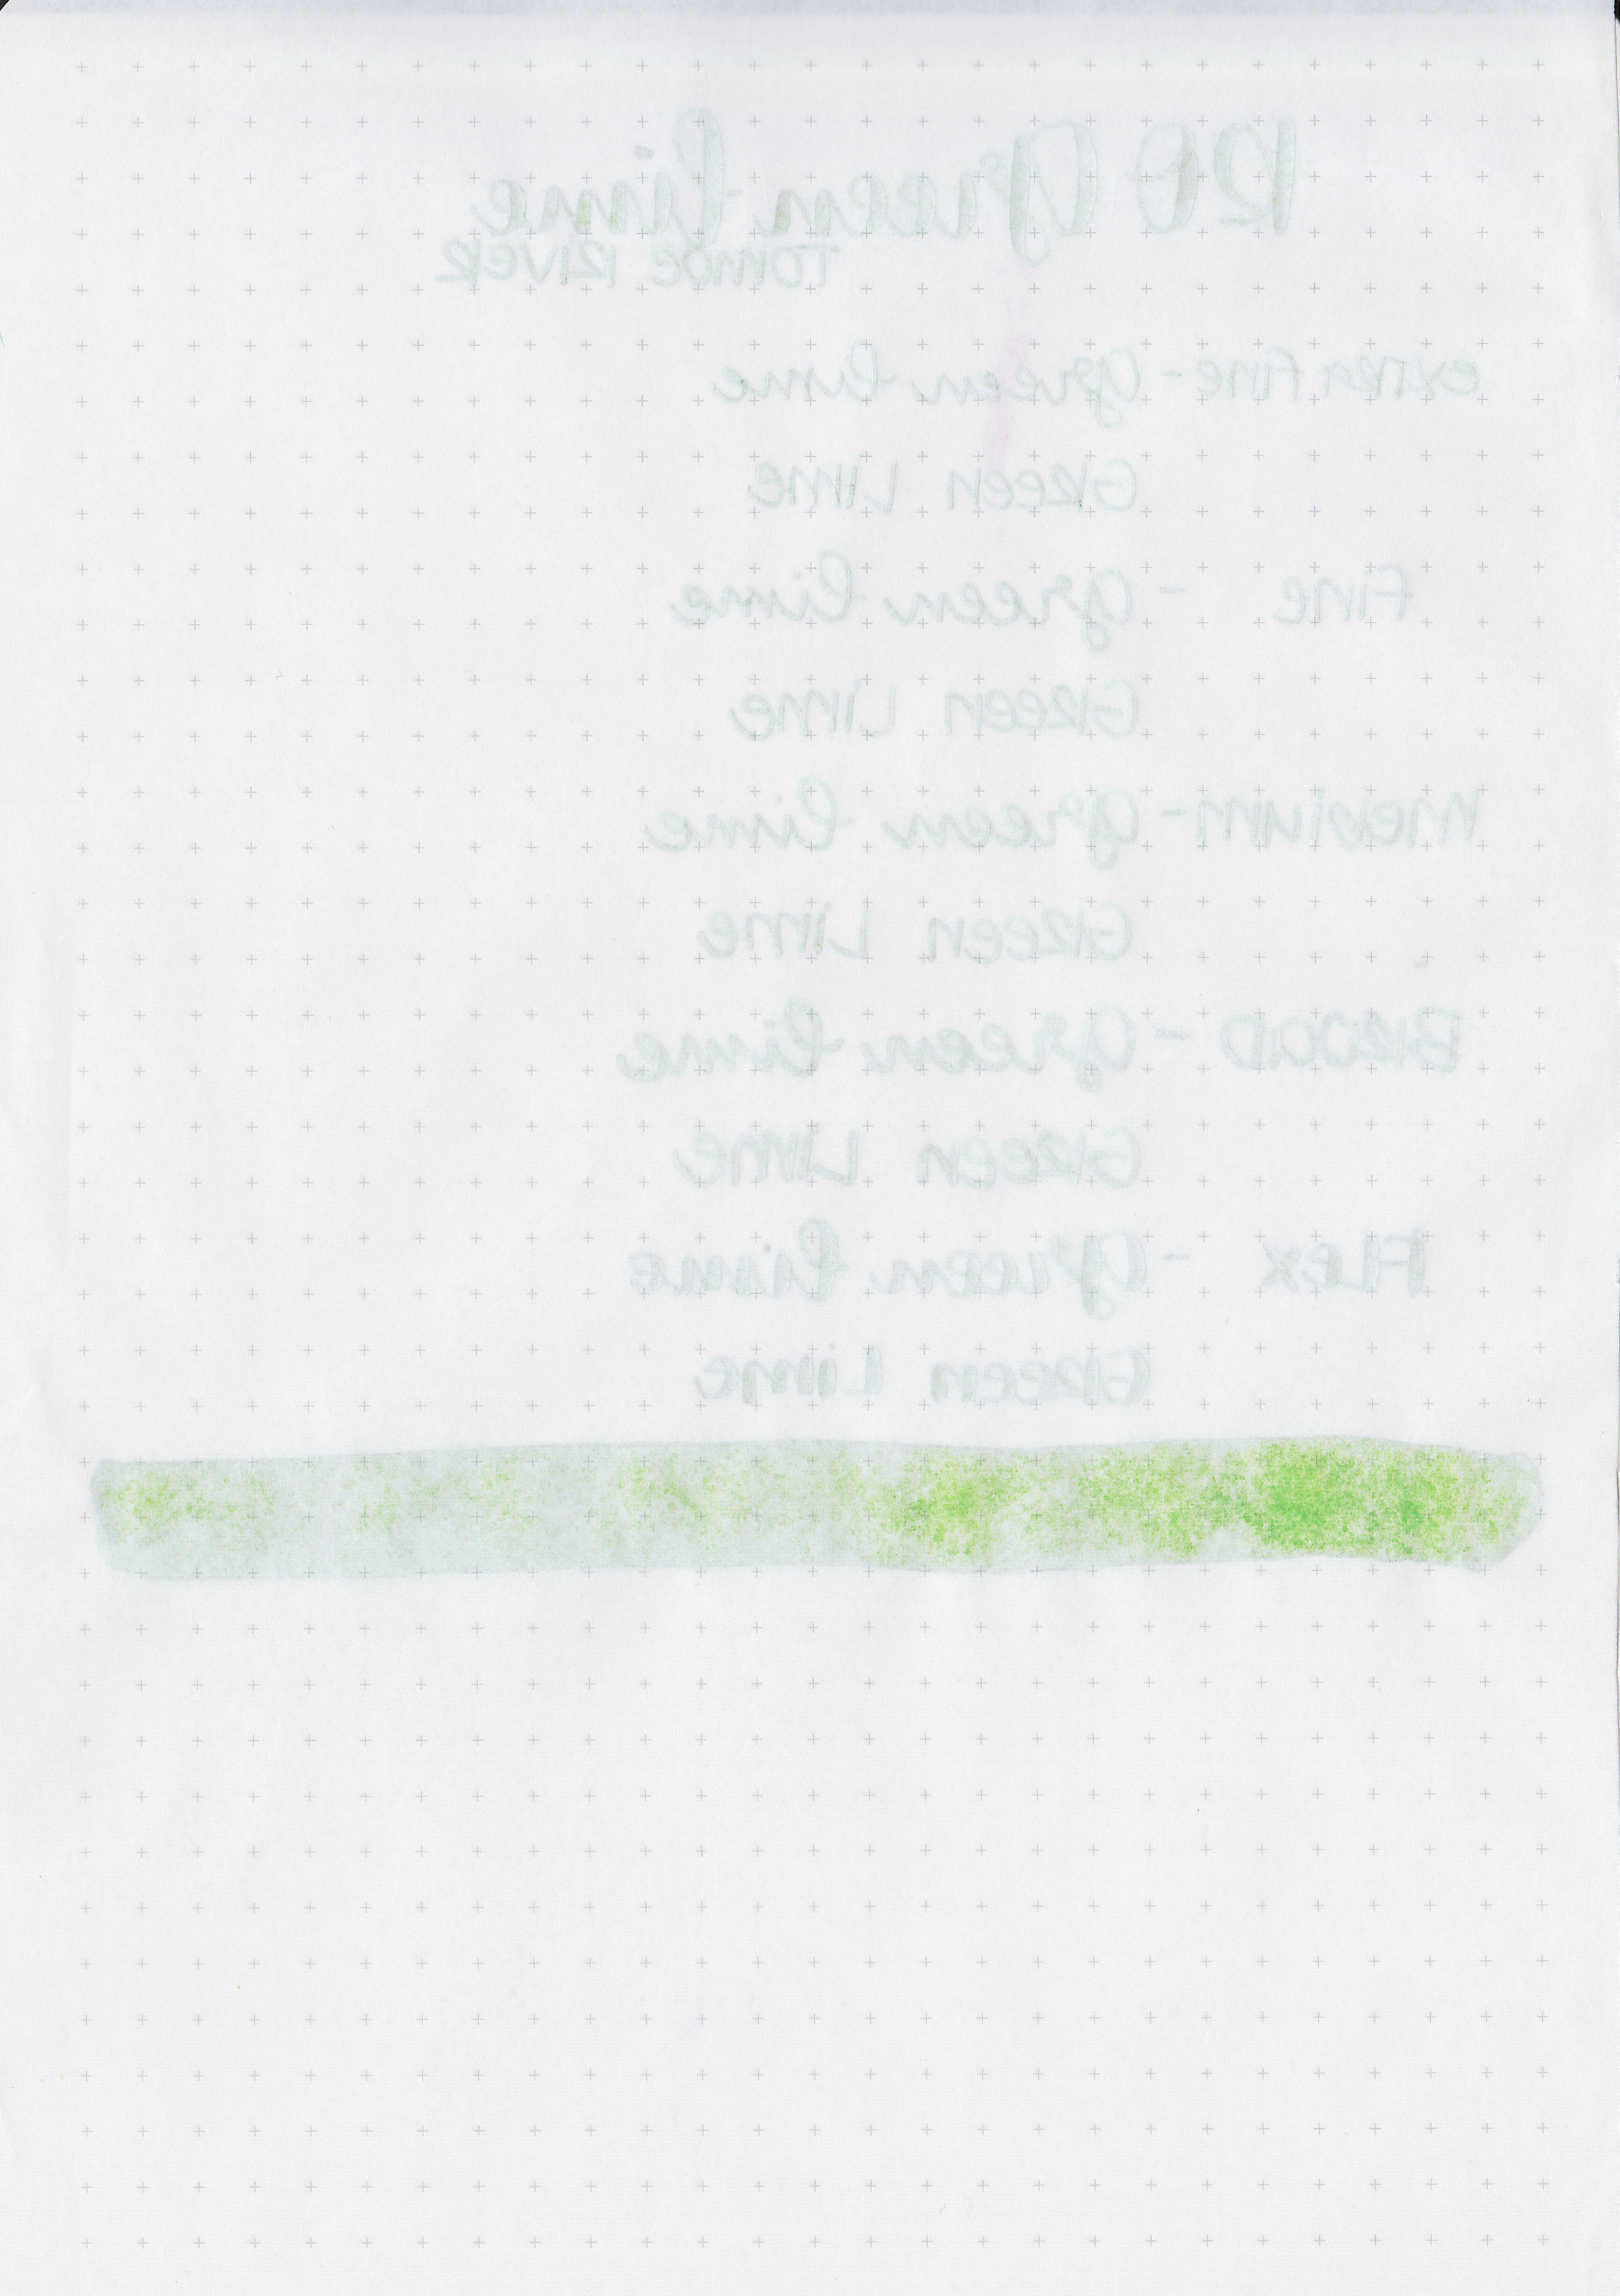 RO Green Lime
TOMOE RIVER
extra Fine - Green Lime
Green Lime
Fine - Green Lime
Green Lime
Medium - Green Lime
Green Lime
BROAD - Green Lime
Green Lime
FLex - Green Lime
Green Lime